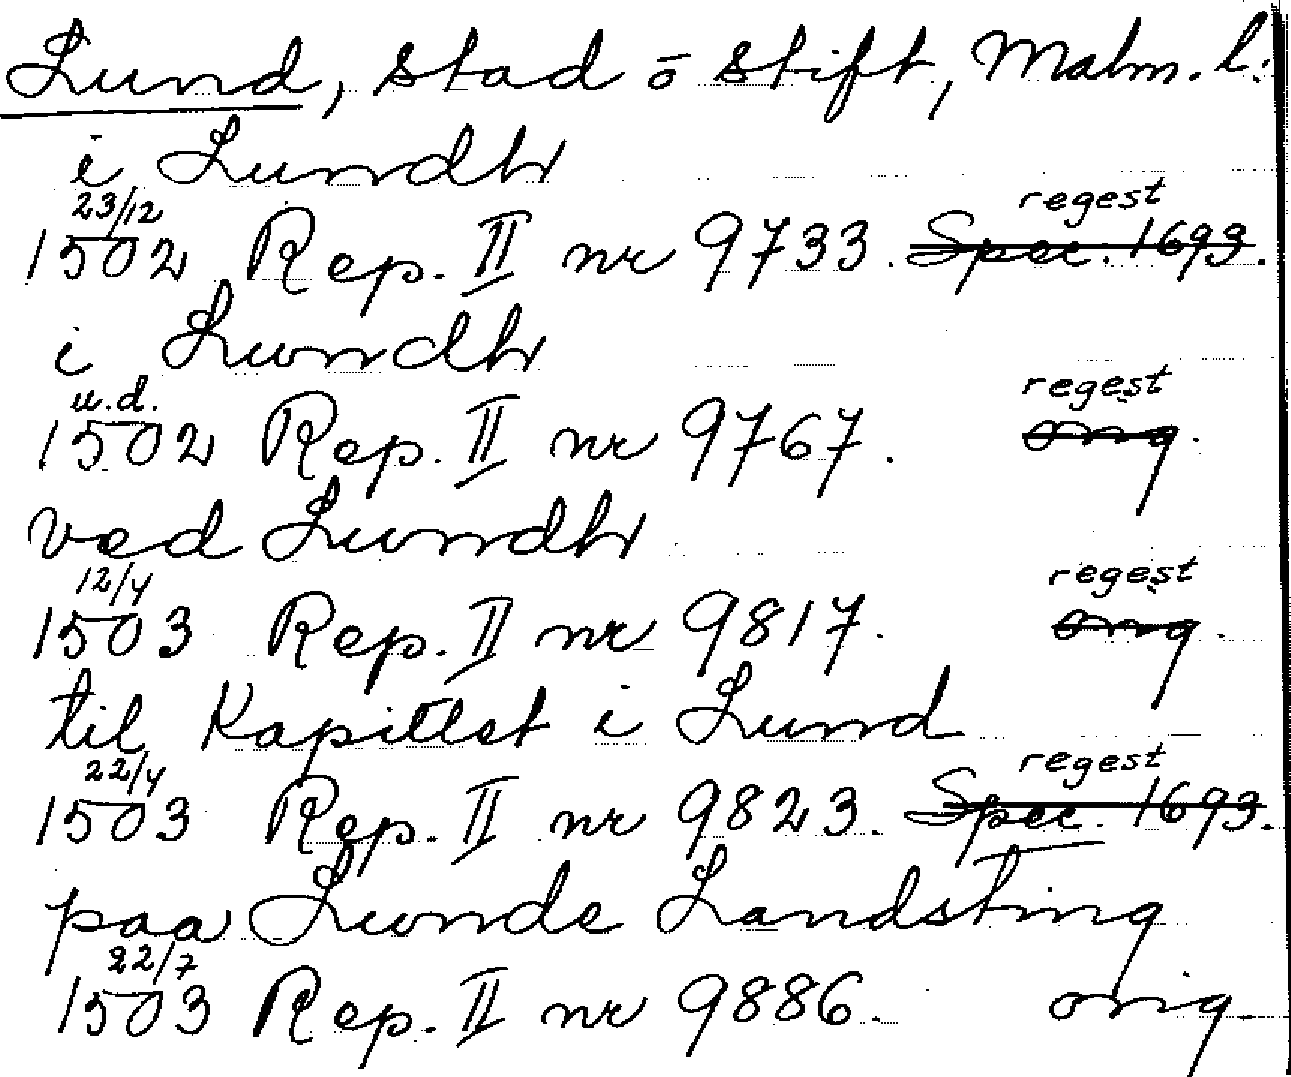 Lund, stad o stift, Malm. l.
i Lundh
23/12 regest
1502 Rep. II nr 9733. Spec. 1693.
i Lundh
u.d. regest
1502 Rep. II nr 9767. orig.
ved Lundh
12/4 regest
1503 Rep. II nr 9817. orig.
til Kapitlet i Lund
22/4 regest
1503 Rep. II nr 9823. Spec. 1693.
paa Lunde Landsting
22/7
1503 Rep. II nr 9886. orig.